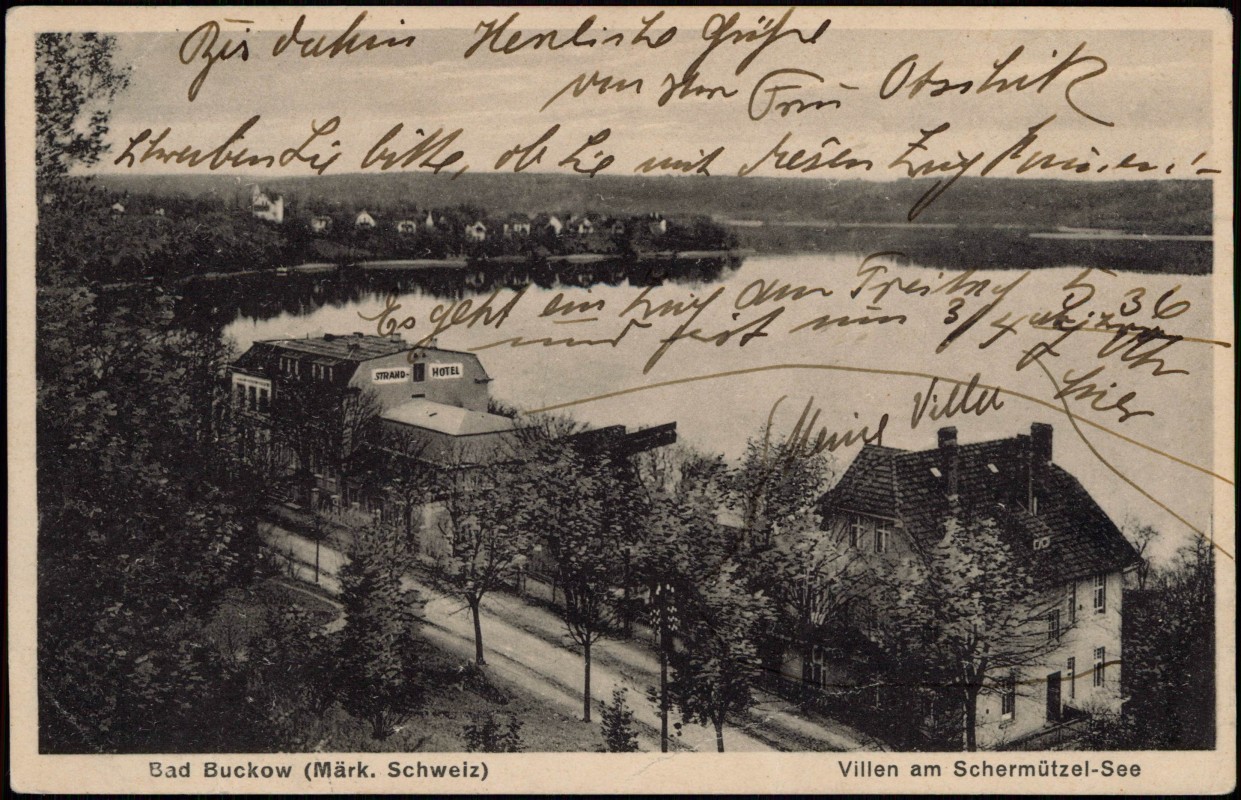 Bis dahin Herzliche Grüße
von Ihrer Frau
Schreiben Sie bitte, ob Sie mit diesen Zug kommen! -
Es geht ein Zug am Freitag 5 36
und ist um 3/4 Uhr
hier
STRAND- HOTEL
Meine Villa
Bad Buckow (Märk. Schweiz)
Villen am Schermützel-See